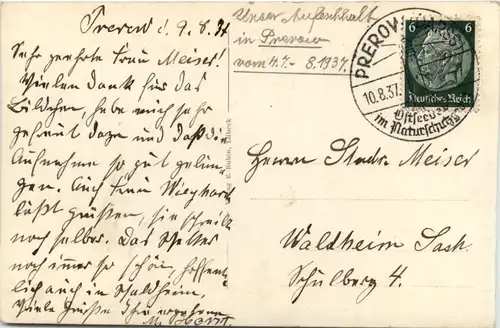 Prerow d. 9.8.37
Sehr geehrte Frau Meiser!
Vielen Dank für das
Bildchen, habe mich sehr
gefreut dazu und daß die
Aufnahmen so gut gelun-
gen. Auch Frau
läßt grüßen, sie schreibt
noch selber. Das Wetter
noch immer so schön, hoffent-
lich auch in Waldheim.
Viele Grüße Ihre
Unser Aufenthalt
in Prerow
vom 4.7. - 8.1937.
PREROW
10.8.37
Ostseebad
im Naturschutz
6 6
Deutsches Reich
Herrn Studr. Meiser
Waldheim Sach.
Schulberg 4.